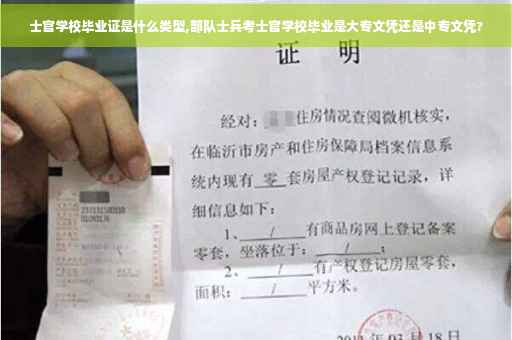 士官学校毕业证是什么类型,部队士兵考士官学校毕业是大专文凭还是中专文凭?
证 明
经对: 住房情况查阅微机核实,
在临沂市房产和住房保障局档案信息系
统内现有 零 套房屋产权登记记录, 详
细信息如下:
1、 / 有商品房网上登记备案
零套, 坐落位于: / ;
2、 / 有产权登记房屋零套,
面积: / 平方米。
18日